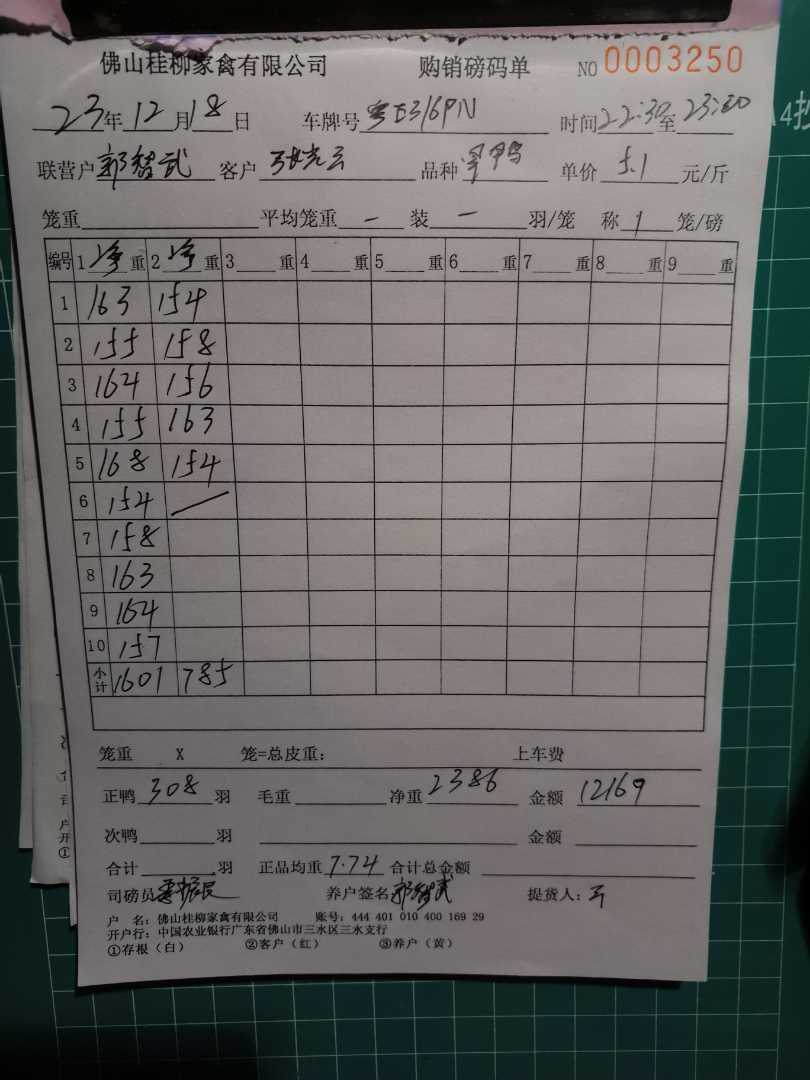 佛山桂柳家禽有限公司 购销磅码单 NO 0003250
23年12月18日 车牌号粤E316PN 时间22:30至23:00
联营户郭智武 客户张光云 品种 单价5.1元/斤
笼重 平均笼重 — 装 — 羽/笼 称1笼/磅
编号 1净重 2净重 3重 4重 5重 6重 7重 8重 9重
1 163 154
2 155 158
3 164 156
4 155 163
5 168 154
6 154
7 158
8 163
9 164
10 157
小计 1601 785
笼重 X 笼=总皮重: 上车费
正鸭308羽 毛重 净重2386 金额12169
次鸭 羽 金额
合计 羽 正品均重7.74 合计总金额
司磅员 养户签名郭智武 提货人:
户 名: 佛山桂柳家禽有限公司 账号: 444 401 010 400 169 29
开户行: 中国农业银行广东省佛山市三水区三水支行
①存根(白) ②客户(红) ③养户(黄)